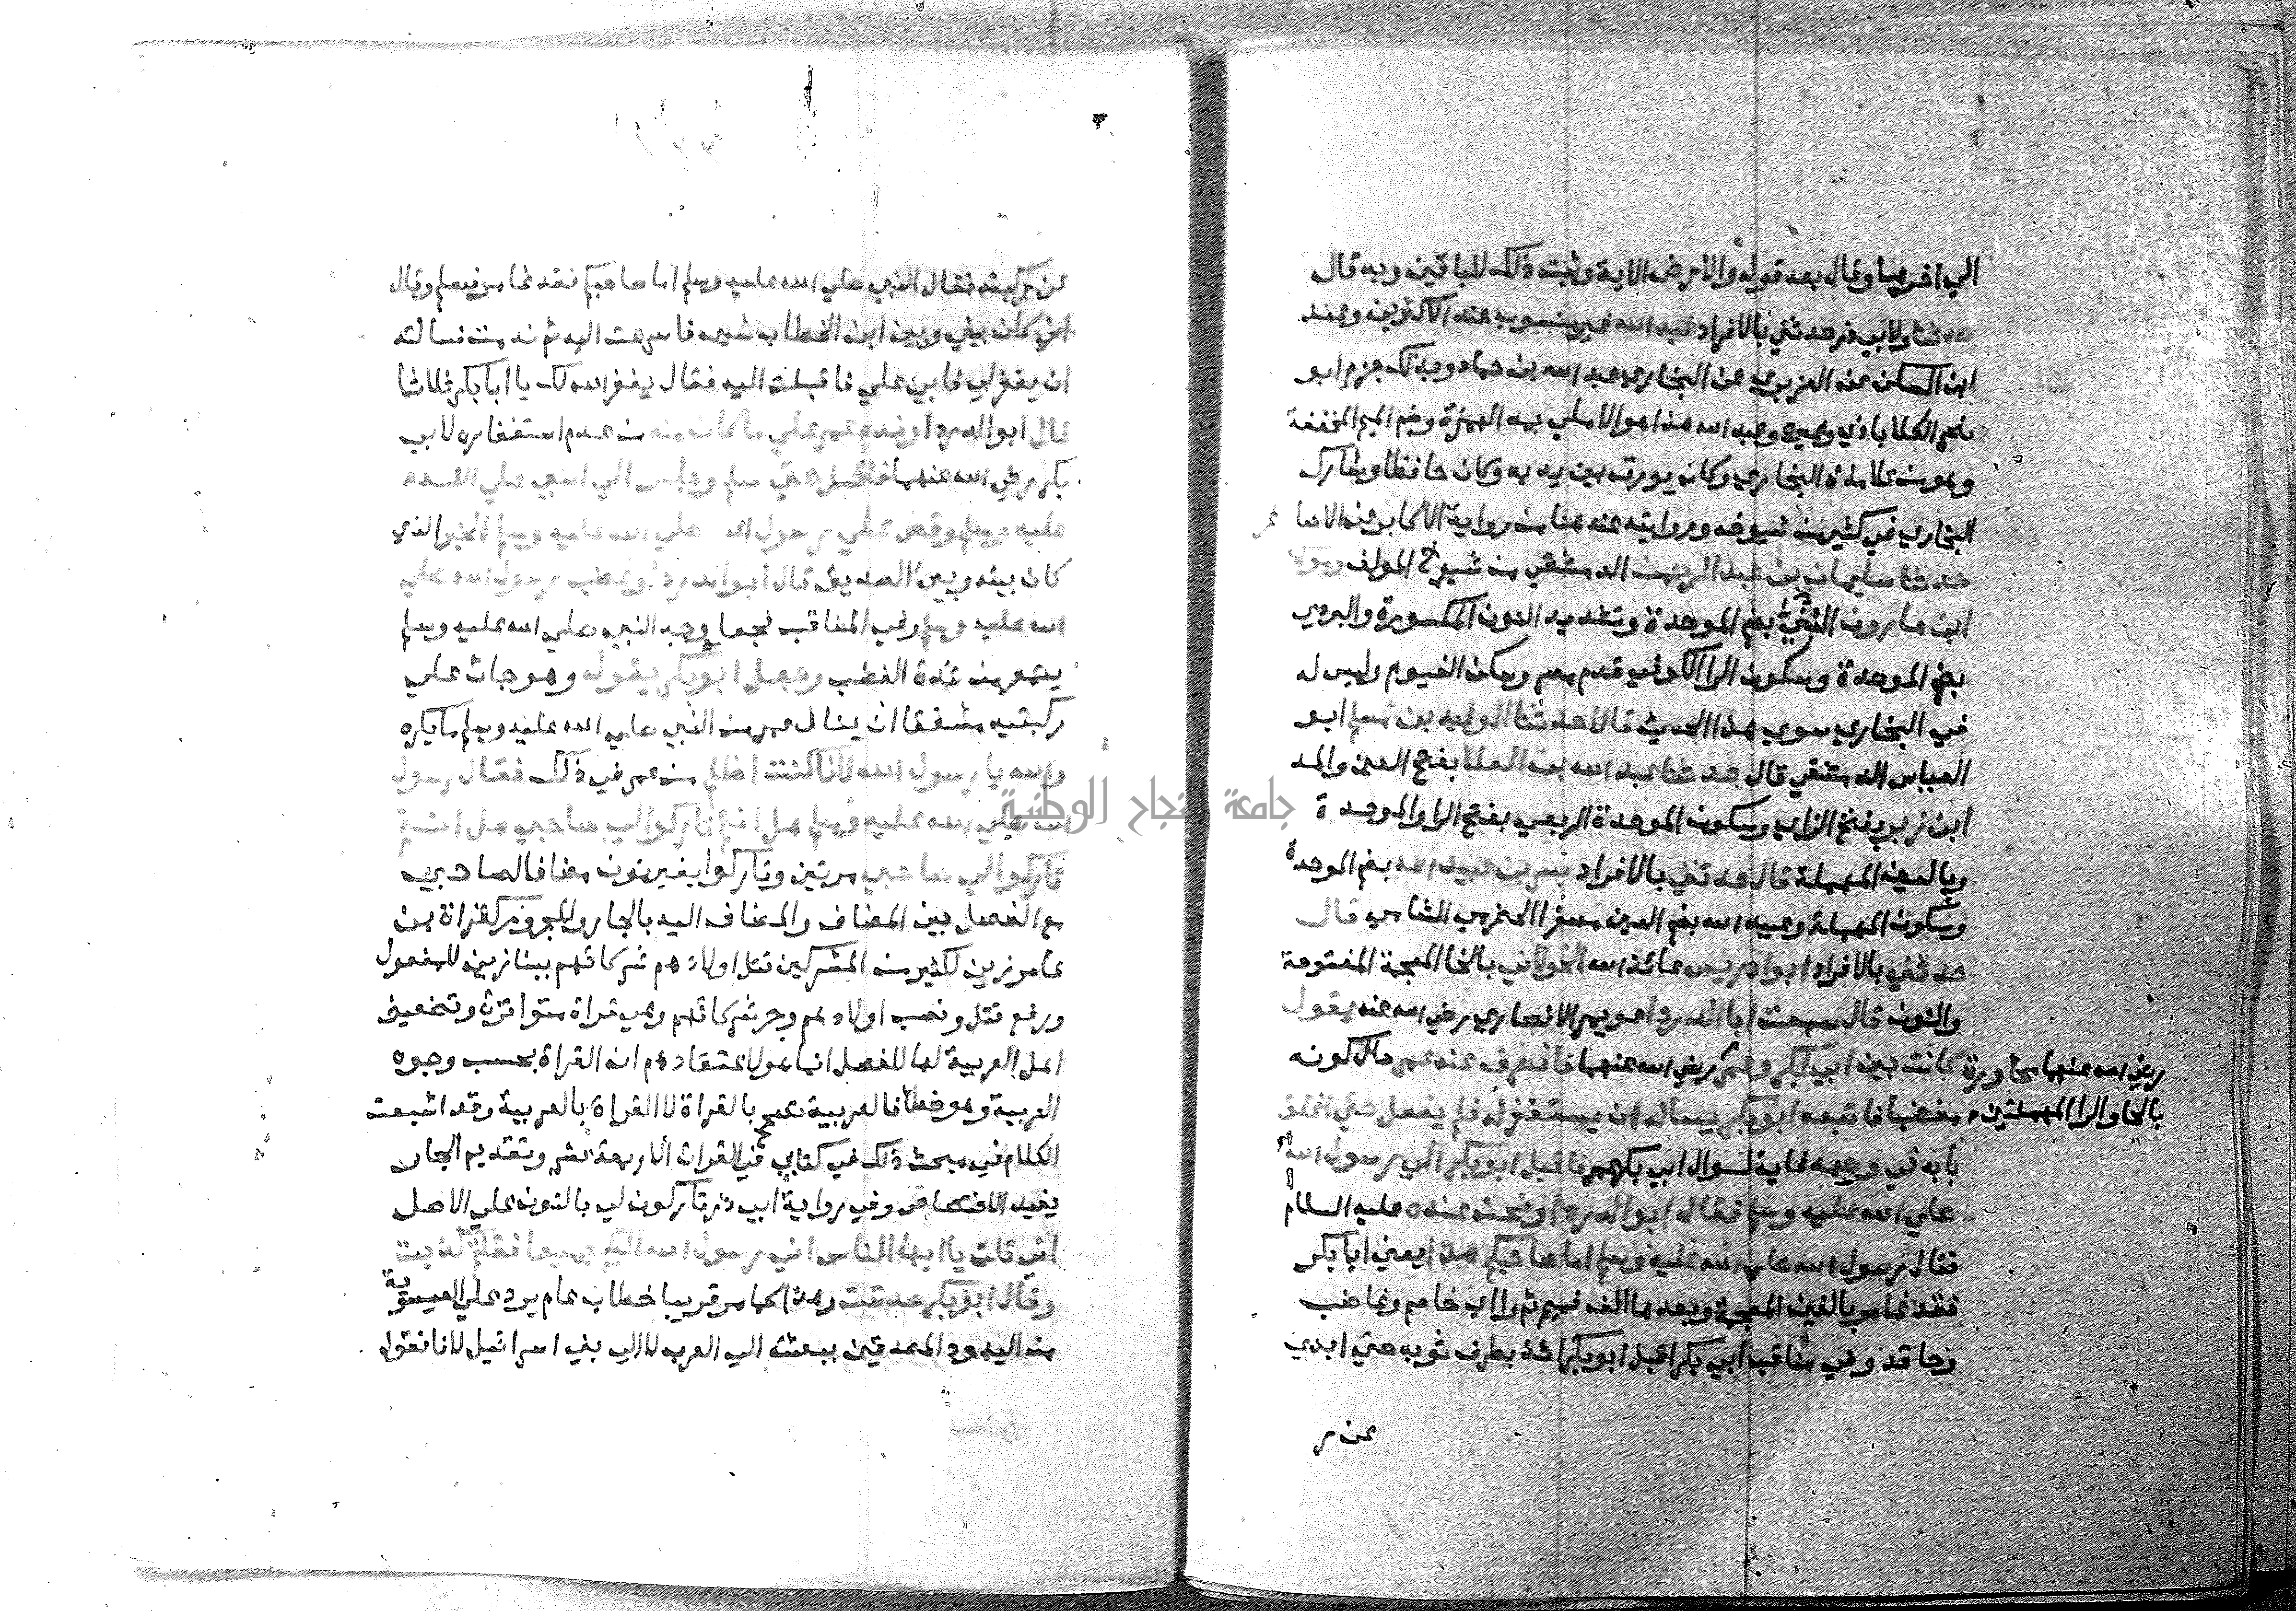 الي اخرها وقال بعد قوله والارض الاية وثبت ذلك للباقين وبه قال
حدثنا ولابي ذر حدثني بالافراد عبد الله غير منسوب عند الاكثرين وعند
ابن السكن عن الفربري عن البخاري عبد الله بن حماد وبذلك جزم ابو
نصر الكلاباذي وغيره وعبد الله هذا هو الاملي بمد الهمزة وضم الميم المخففة
وهو من تلامذة البخاري وكان يورق بين يديه وكان حافظا وشارك
البخاري في كثير من شيوخه وروايته عنه هنا من رواية الاكابر عن الاصا غر
حدثنا سليمان بن عبد الرحمن الدمشقي من شيوخ المولف وموسى
ابن هارون البني بضم الموحدة وتشديد النون المكسورة والبردي
بضم الموحدة وسكون الرا الكوفي قدم مصر وسكن الفيوم وليس له
في البخاري سوي هذا الحديث قالا حدثنا الوليد بن مسلم ابو
العباس الدمشقي قال حدثنا عبد الله بن العلا بفتح العين والمد
ابن زبر بفتح الزاي وسكون الموحدة الربعي بفتح الرا والموحدة
وبالعين المهملة قال حدثني بالافراد بسر بن عبيد الله بضم الموحدة
وسكون المهملة وعبيد الله بضم العين مصغرا الحضرمي الشامي قال
حدثني بالافراد ابو ادريس عائذ الله الخولاني بالخا المعجمة المفتوحة
والنون قال سمعت ابا الدردا عويمر الانصاري رضي الله عنه يقول
كانت بين ابي بكر وعمر رضي الله عنهما فانصرف عنه عمر حال كونه
رضي الله عنهما محاورة
بالحا والرا المهملتين
مغضبا فاتبعه ابو بكر يساله ان يستغفر له فلم يفعل حتي اغلق
بابه في وجهه غاية لسوال ابي بكر عمر فاقبل ابو بكر الي رسول الله
صلي الله عليه وسلم فقال ابو الدردا ونحن عنده عليه السلام
فقال رسول الله صلي الله عليه وسلم اما صاحبكم هذا يعني ابا بكر
فقد غامر بالغين المعجمة وبعدها الف فميم ثم را اي خاصم وغاضب
وحاقد وفي مناقب ابي بكر اقبل ابو بكر اخذ بطرف ثوبه حتي ابدي
عن ر
عن ركبته فقال النبي صلي الله عليه وسلم اما صاحبكم فقد غامر فسلم وقال
اني كان بيني وبين ابن الخطاب شيء فاسرعت اليه ثم ندمت فسالته
ان يغفر لي فابي علي فاقبلت اليك فقال يغفر الله لك يا ابا بكر ثلاثا
قال ابو الدردا وندم عمر علي ما كان منه من عدم استغفاره لابي
بكر رضي الله عنهما فاقبل حتي سلم وجلس الي النبي صلي الله
عليه وسلم وقص علي رسول الله صلي الله عليه وسلم الخبر الذي
كان بينه وبين الصديق قال ابو الدردا وغضب رسول الله صلي
الله عليه وسلم وفي المناقب فجعل وجه النبي صلي الله عليه وسلم
يتمعر من شدة الغضب وجعل ابو بكر يقول وهو جاث علي
ركبتيه مشفقا ان ينال عمر من النبي صلي الله عليه وسلم ما يكره
والله يا رسول الله لانا كنت اظلم من عمر في ذلك فقال رسول
الله صلي الله عليه وسلم هل انتم تاركوا لي صاحبي هل انتم
تاركوا لي صاحبي مرتين وتاركوا بغير نون مضافا لصاحبي
مع الفصل بين المضاف والمضاف اليه بالجار والمجرور كقراة بن
عامر زين لكثير من المشركين قتل اولادهم شركائهم ببنا زين للمفعول
ورفع قتل ونصب اولادهم وجر شركائهم وهي قراة متواترة وتضعيف
اهل العربية لها للفصل انما هو لاعتقادهم ان القراة بحسب وجوه
العربية وهو خطا فالعربية تصحح بالقراة لا القراة بالعربية وقد اشبعت
الكلام في مبحث ذلك في كتابي في القرات الاربعة عشر وتقديم الجار
يفيد الاختصاص وفي رواية ابي ذر تاركون لي بالنون علي الاصل
اني قلت يا ايها الناس اني رسول الله اليكم جميعا فقلتم كذبت
وقال ابو بكر صدقت وهذا كما مر قريبا خطاب عام يرد علي العيسوية
من اليهود المصدقين ببعثته الي العرب لا الي بني اسرائيل لانا نقول
جامعة النجاح الوطنية